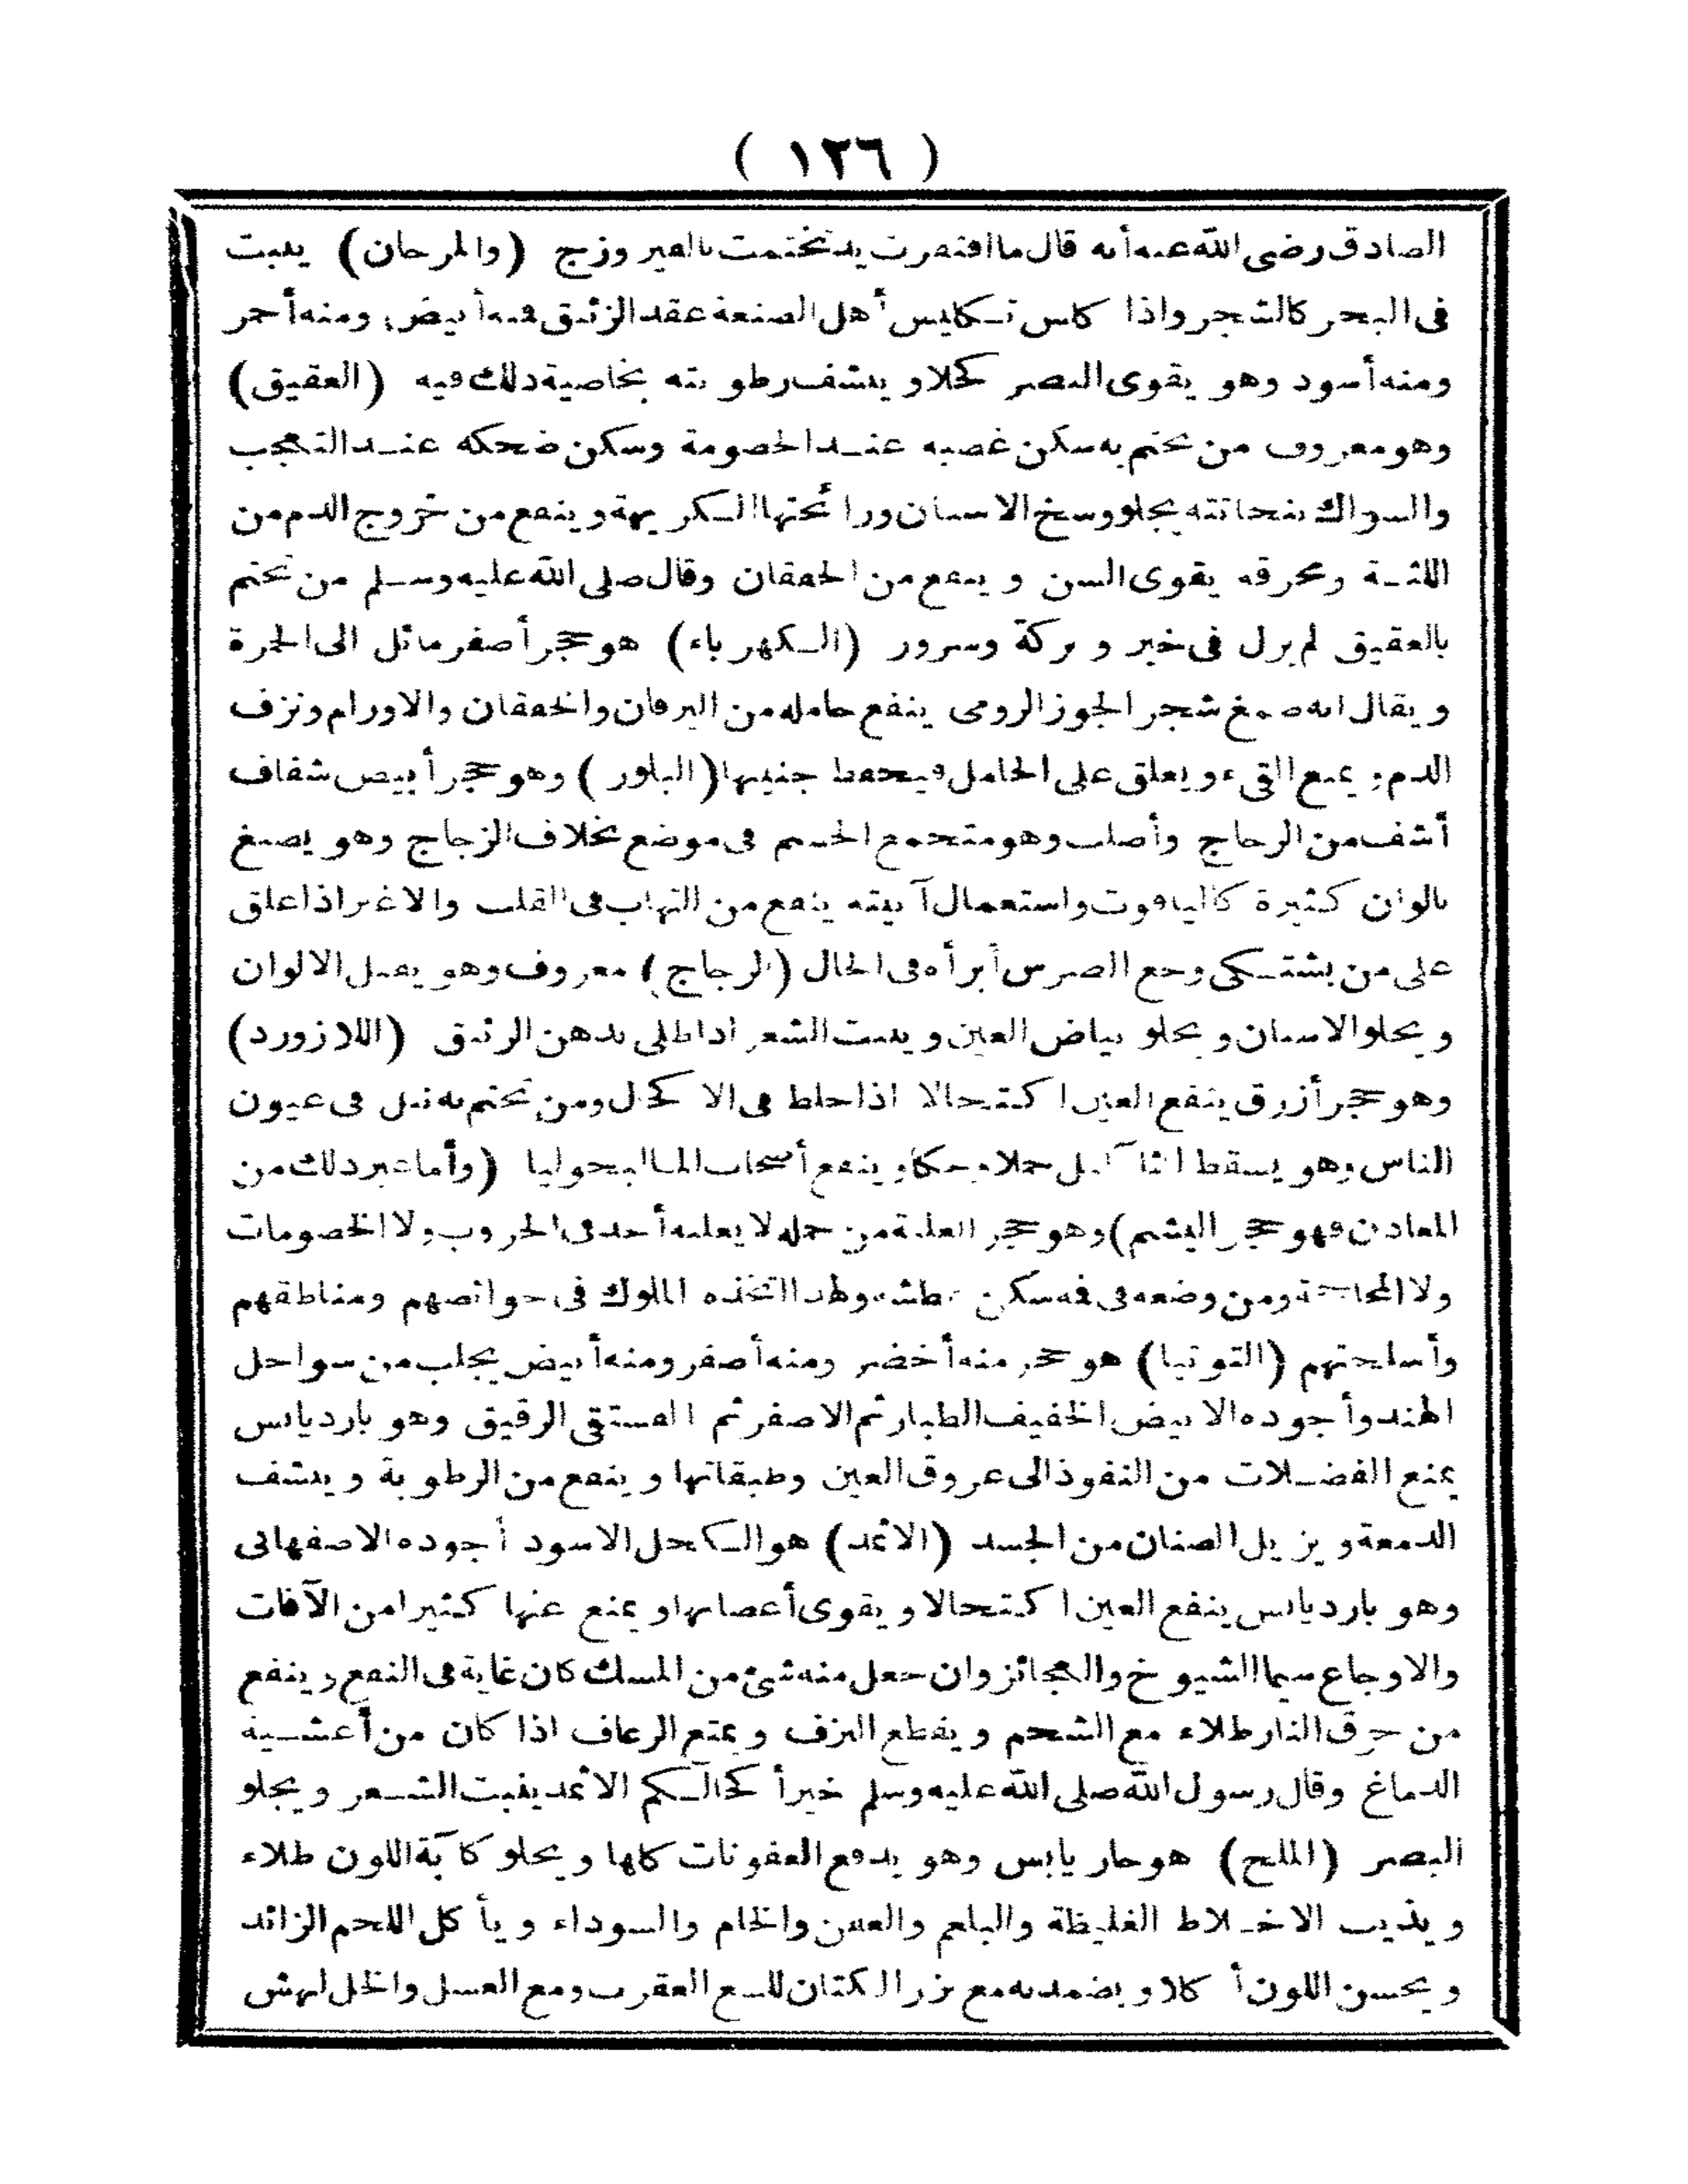 ( ١٢٦ )
الصادق رضى الله عنه أنه قال ما افتقرت يد تختمت بالفيروزج (والمرجان) ينبت
فى البحر كالشجر واذا كلس تكليس أهل الصنعة عقد الزئبق فمنه أبيض ومنه أحمر
ومنه أسود وهو يقوى البصر كحلا و ينشف رطوبته بخاصية ذلك فيه (العقيق)
وهو معروف من تختم به سكن غضبه عند الخصومة وسكن ضحكه عند التعجب
والسواك بنحاتته يجلو وسخ الاسنان ورائحتها الكريهة و ينفع من خروج الدم من
اللثة ومحرقه يقوى السن و ينفع من الخفقان وقال صلى الله عليه وسلم من تختم
بالعقيق لم يزل فى خير و بركة وسرور (الكهرباء) هو حجر أصفر مائل الى الحمرة
و يقال انه صمغ شجر الجوز الرومى ينفع حامله من اليرقان والخفقان والاورام ونزف
الدم و يمنع القىء و يعلق على الحامل فيحفظ جنينها (البلور) وهو حجر أبيض شفاف
أشف من الزجاج وأصلب وهو متجمع الجسم فى موضع بخلاف الزجاج وهو يصبغ
بالوان كثيرة كالياقوت واستعمال آنيته ينفع من التهاب فى القلب والاغبر اذا علق
على من يشتكى وجع الضرس أبرأه فى الحال (الزجاج) معروف وهو يقبل الالوان
و يجلو الاسنان و يجلو بياض العين و ينبت الشعر اذا طلى بدهن الزئبق (اللازورد)
وهو حجر أزرق ينفع العين اكتحالا اذا خلط فى الاكحال ومن تختم به نبل فى عيون
الناس وهو يسقط الثآليل حملا وحكا و ينفع أصحاب الماليخوليا (وأما غير ذلك من
المعادن فهو حجر اليشم) وهو حجر الغلبة من حمله لا يغلبه أحد فى الحروب ولا الخصومات
ولا المحاججة ومن وضعه فى فمه سكن عطشه ولهذا اتخذه الملوك فى حوائصهم ومناطقهم
وأسلحتهم (التوتيا) هو حجر منه أخضر ومنه أصفر ومنه أبيض يجلب من سواحل
الهند وأجوده الابيض الخفيف الطيار ثم الاصفر ثم الفستقى الرقيق وهو بارد يابس
يمنع الفضلات من النفوذ الى عروق العين وطبقاتها و ينفع من الرطوبة و ينشف
الدمعة و يزيل الصنان من الجسد (الاثمد) هو الكحل الاسود أجوده الاصفهانى
وهو بارد يابس ينفع العين اكتحالا و يقوى أعصابها و يمنع عنها كثيرا من الآفات
والاوجاع سيما الشيوخ والعجائز وان جعل منه شئ من المسك كان غاية فى النفع و ينفع
من حرق النار طلاء مع الشحم و يقطع النزف و يمنع الرعاف اذا كان من أغشية
الدماغ وقال رسول الله صلى الله عليه وسلم خير أكحالكم الاثمد ينبت الشعر و يجلو
البصر (الملح) هو حار يابس وهو يدفع العفونات كلها و يجلو كآبة اللون طلاء
و يذيب الاخلاط الغليظة والبلغم والعفن والخام والسوداء و يأكل اللحم الزائد
و يحسن اللون أكلا و يضمد به مع بزر الكتان للسع العقرب ومع العسل والخل لنهش